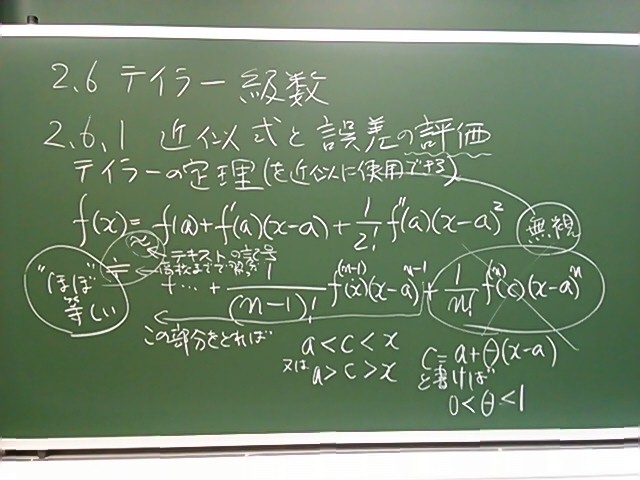 2.6 テイラー級数
2.6.1 近似式と誤差の評価
テイラーの定理(を近似に使用できる)
f(x) = f(a) + f'(a)(x-a) + 1/2! f''(a)(x-a)²
無視
≈ ← テキストの記号
≒ ← 高校までで習う
"ほぼ"等しい
+ … + 1/(n-1)! f^(n-1)(x)(x-a)^n-1 + 1/n! f^(n)(c)(x-a)^n
この部分をとれば
a < c < x
又は a > c > x
c = a + θ(x-a)
と書けば
0 < θ < 1